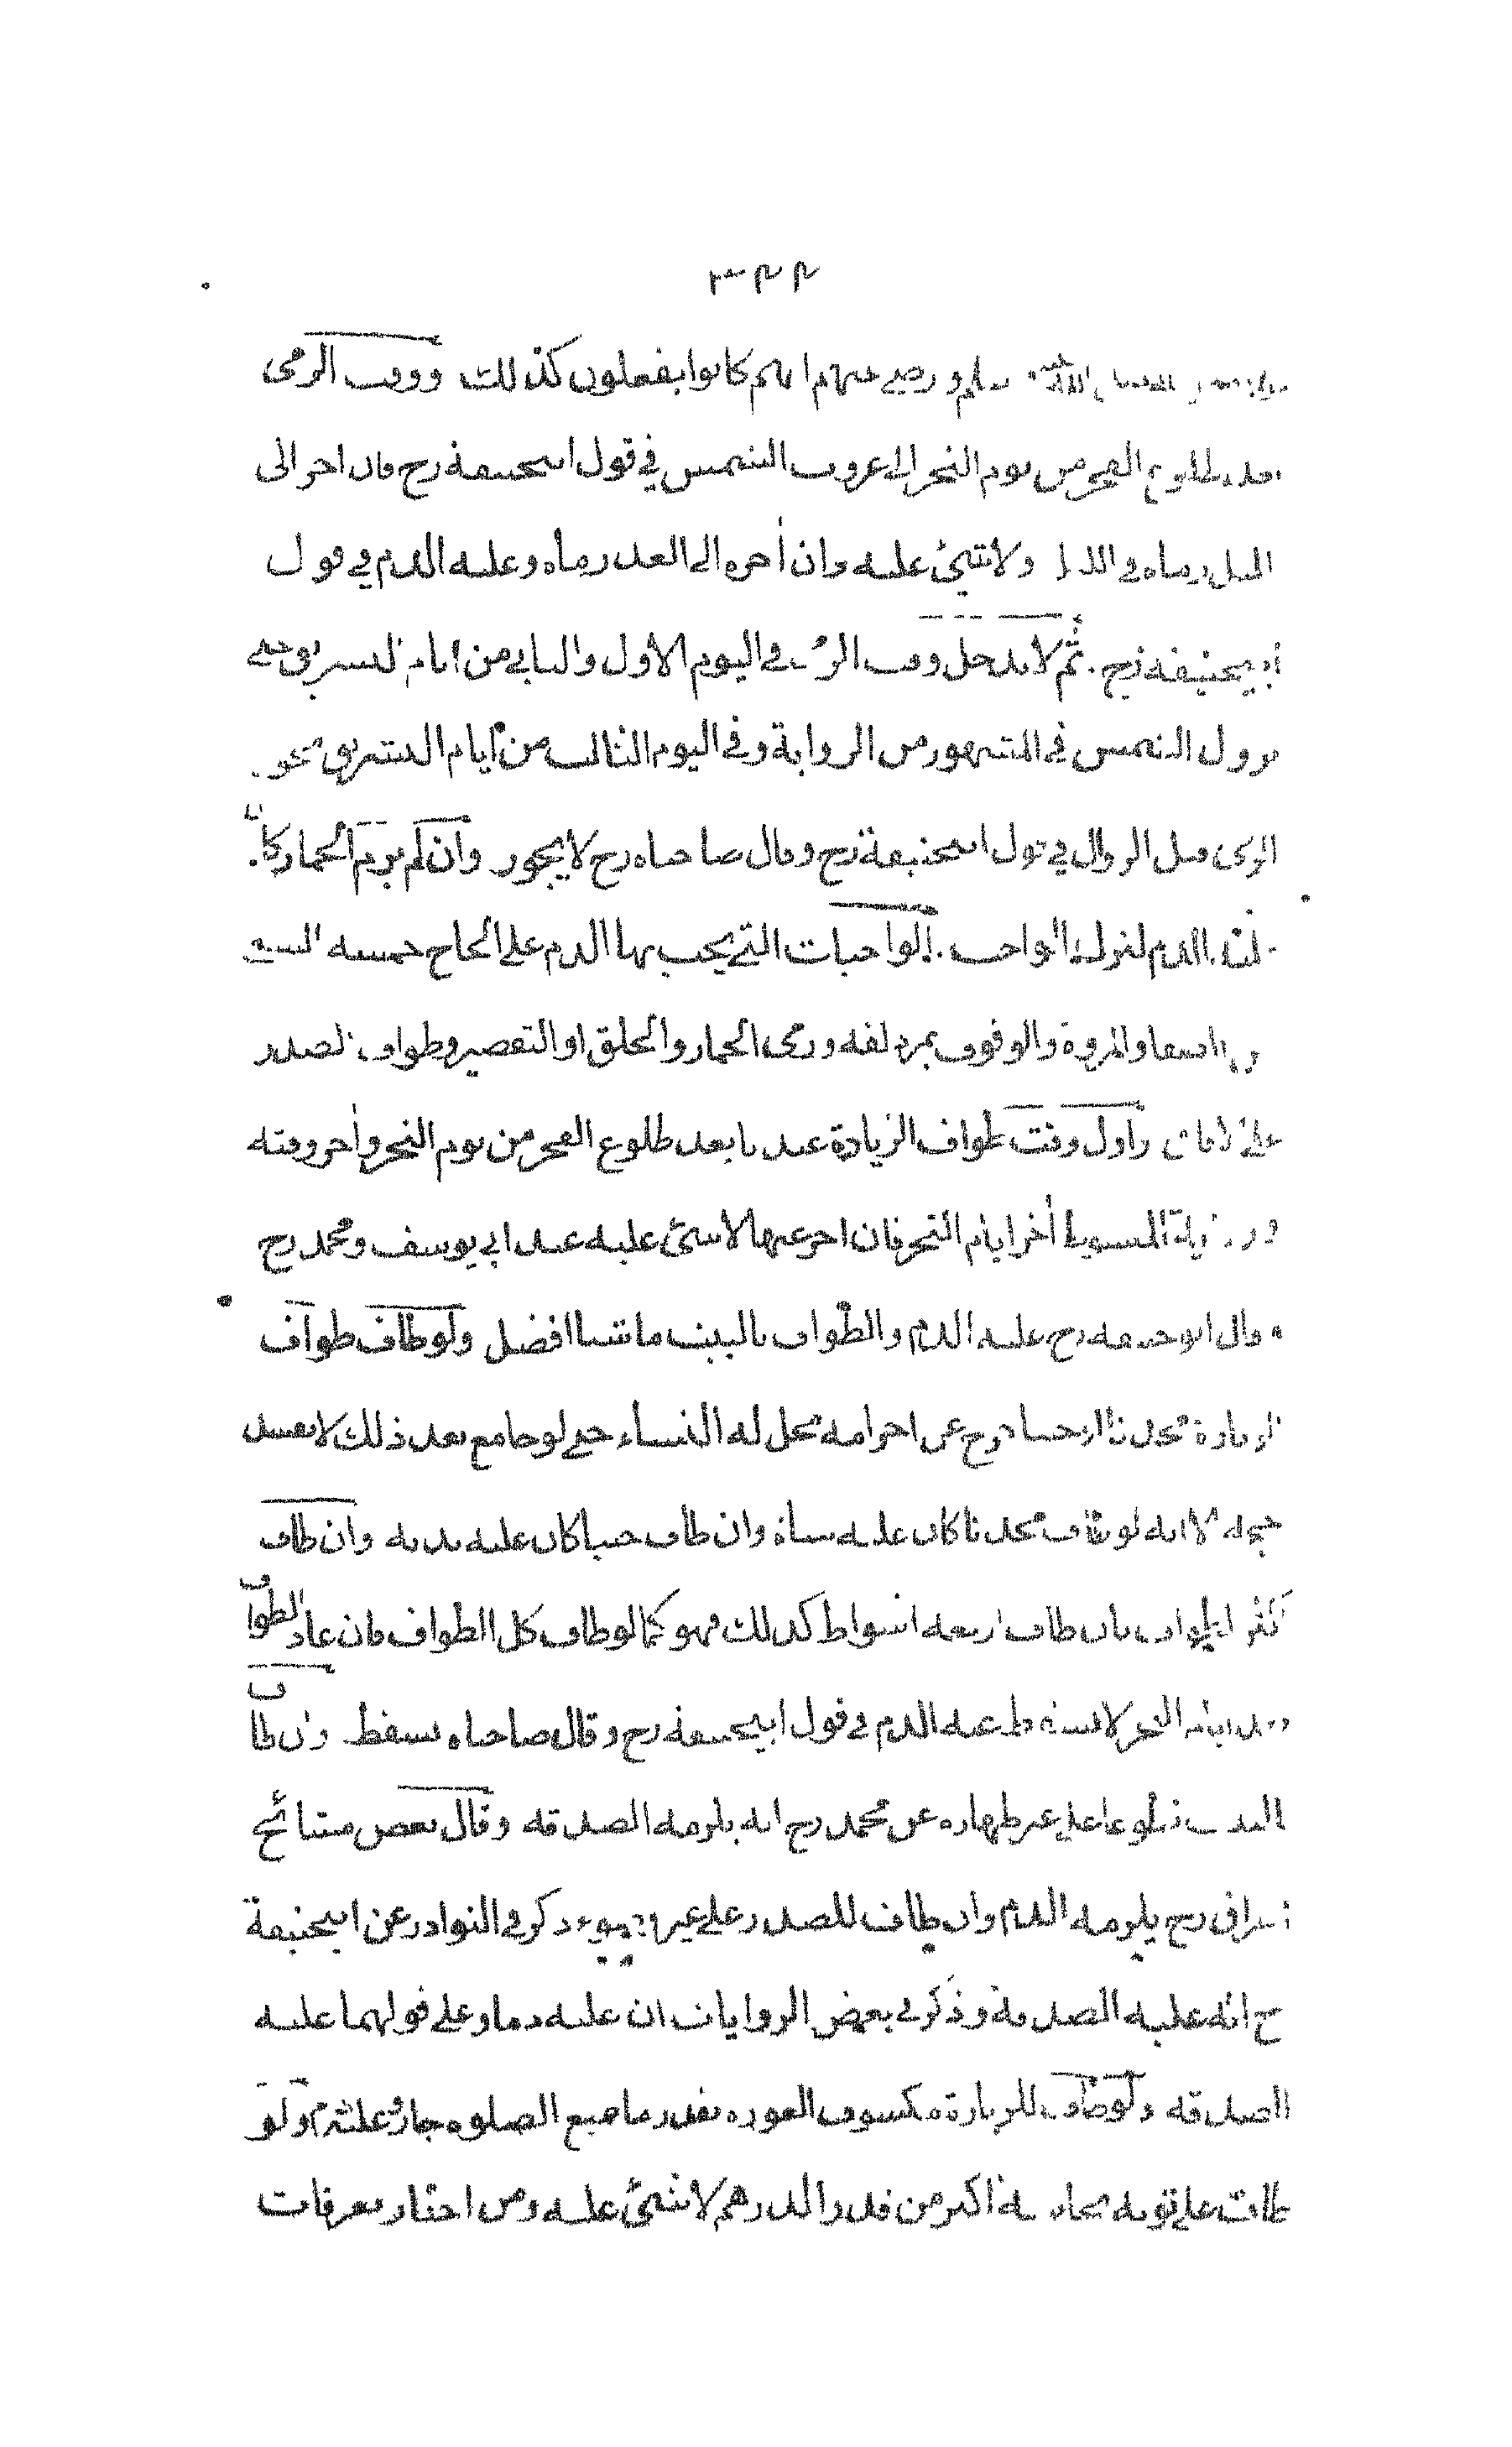 سلم ورضي عنهم انهم كانوا يفعلون كذلك ووقت الرمى
بعد طلوع الفجر من يوم النحر الى غروب الشمس في قول ابيحنيفة رح فان اخر الى
الليل رماه في الليل ولا شئ عليه وان أخره الى الغد رماه وعليه الدم في قول
ابيحنيفة رح ثم لا يدخل وقت الرمى في اليوم الاول والثاني من ايام التشريق حتى
تزول الشمس في المشهور من الرواية وفي اليوم الثالث من أيام التشريق يجوز
الرمى قبل الزوال في قول ابيحنيفة رح وقال صاحباه رح لا يجوز وان لم يرم الجمار كان
الدم لترك الواجب الواجبات التي يجب بها الدم على الحاج خمسة السعي
بين الصفا والمروة والوقوف بمزدلفه ورمى الجمار والحلق او التقصير وطواف الصدر
واول وقت طواف الزيادة عندنا بعد طلوع الفجر من يوم النحر وأخر وقته
المبسوط أخر ايام النحر فان اخر عنها لا شئ عليه عند ابي يوسف ومحمد رح
وقال ابو حنيفه رح عليه الدم والطواف بالبيت ماشيا افضل ولو طاف طواف
الزيارة محدثا او جنبا خرج عن احرامه يحل له النساء حتى لو جامع بعد ذلك لا يفسد
حجه الا انه لو طاف محدثا كان عليه شاة وان طاف جنبا كان عليه بدنه وان طاف
اكثر الطواف بان طاف اربعة اشواط كذلك فهو كما لو طاف كل الطواف فان عاد الطواف
بعد ايام النحر لا يسقط عنه الدم في قول ابيحنيفة رح وقال صاحباه يسقط وان طاف
البيت تطوعا على غير طهاره عن محمد رح انه يلزمه الصدقه وقال بعض مشائخ
رح يلزمه الدم وان طاف للصدر على غير وضوء ذكر في النوادر عن ابيحنيفة
رح انه عليه الصدقة وذكر في بعض الروايات ان عليه دما وعلى قولهما عليه
الصدقه ولو طاف للزيارة مكسوف العوره بقدر ما يمنع الصلوة جاز وعليه دم ولو
طاف على ثوبه نجاسة اكبر من قدر الدرهم لا شئ عليه ومن اجتاز بعرفات